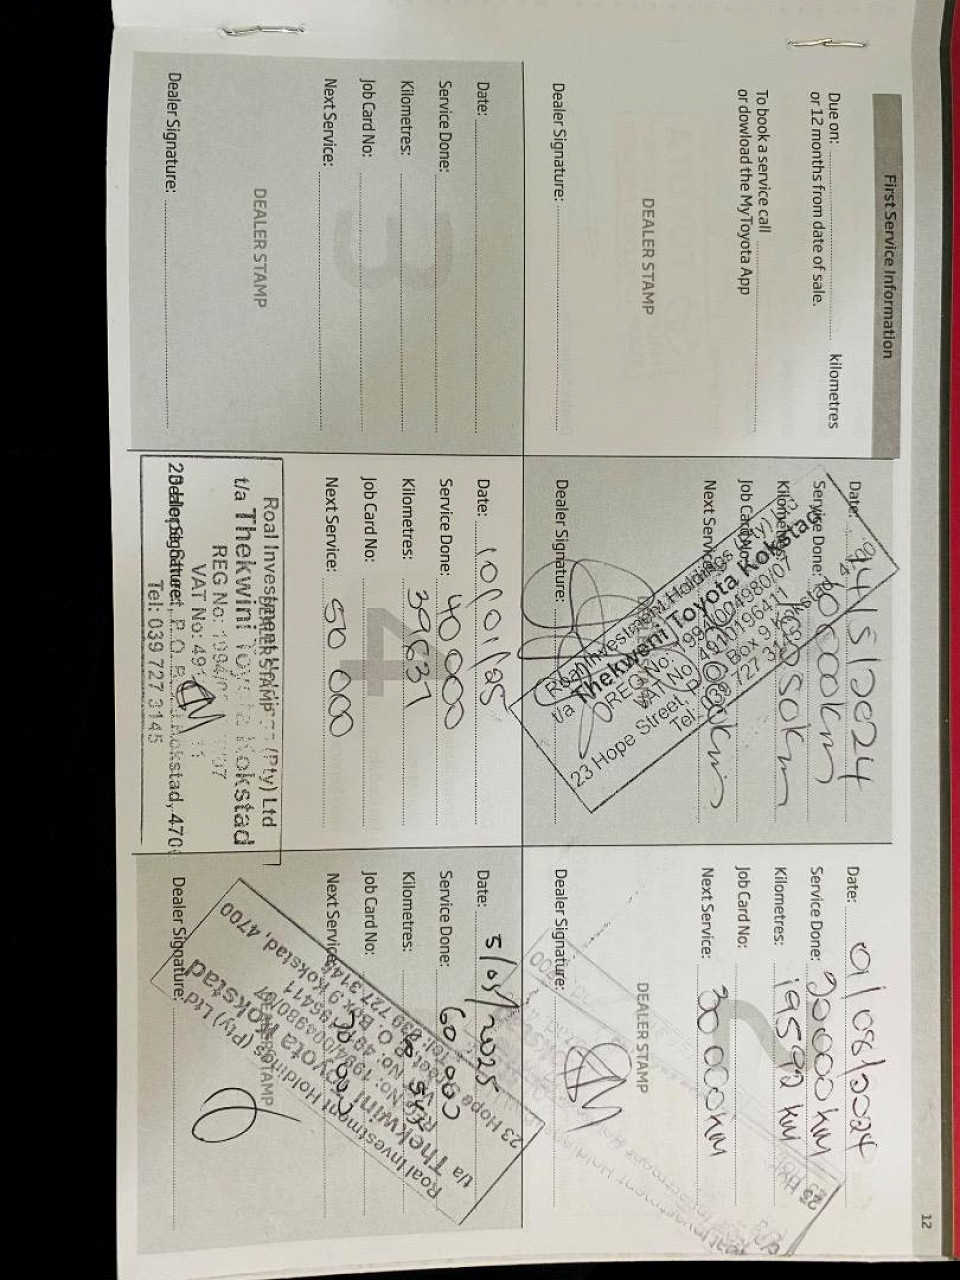 12
First Service Information
Due on: kilometres
or 12 months from date of sale.
To book a service call
or dowload the MyToyota App
DEALER STAMP
Dealer Signature:
Date: 14/5/2024
Service Done: 10000km
Kilometres:
Job Card No:
Next Service:
Roal Investment Holdings (Pty) Ltd
t/a Thekwini Toyota Kokstad
REG No: 1994/004980/07
VAT No: 4910196411
23 Hope Street, P.O. Box 9 Kokstad, 4700
Tel: 039 727 3145
Dealer Signature:
Date: 01/08/2024
Service Done: 20000 KM
Kilometres: 19592 KM
Job Card No:
Next Service: 30 000KM
2
DEALER STAMP
Dealer Signature:
Date:
Service Done:
Kilometres:
Job Card No:
Next Service:
3
DEALER STAMP
Dealer Signature:
Date: 10/01/25
Service Done: 40 000
Kilometres: 39631
Job Card No:
Next Service: 50 000
4
DEALER STAMP
Roal Investment Holdings (Pty) Ltd
t/a Thekwini Toyota Kokstad
REG No: 1994/004980/07
VAT No:
Dealer Signature:
Kokstad, 470
Tel: 039 727 3145
Date: 5/05/2025
Service Done: 60 000
Kilometres:
Job Card No:
Next Service:
DEALER STAMP
Roal Investment Holdings (Pty) Ltd
t/a Thekwini Toyota Kokstad
23 Hope
Box 9 Kokstad, 4700
Dealer Signature: